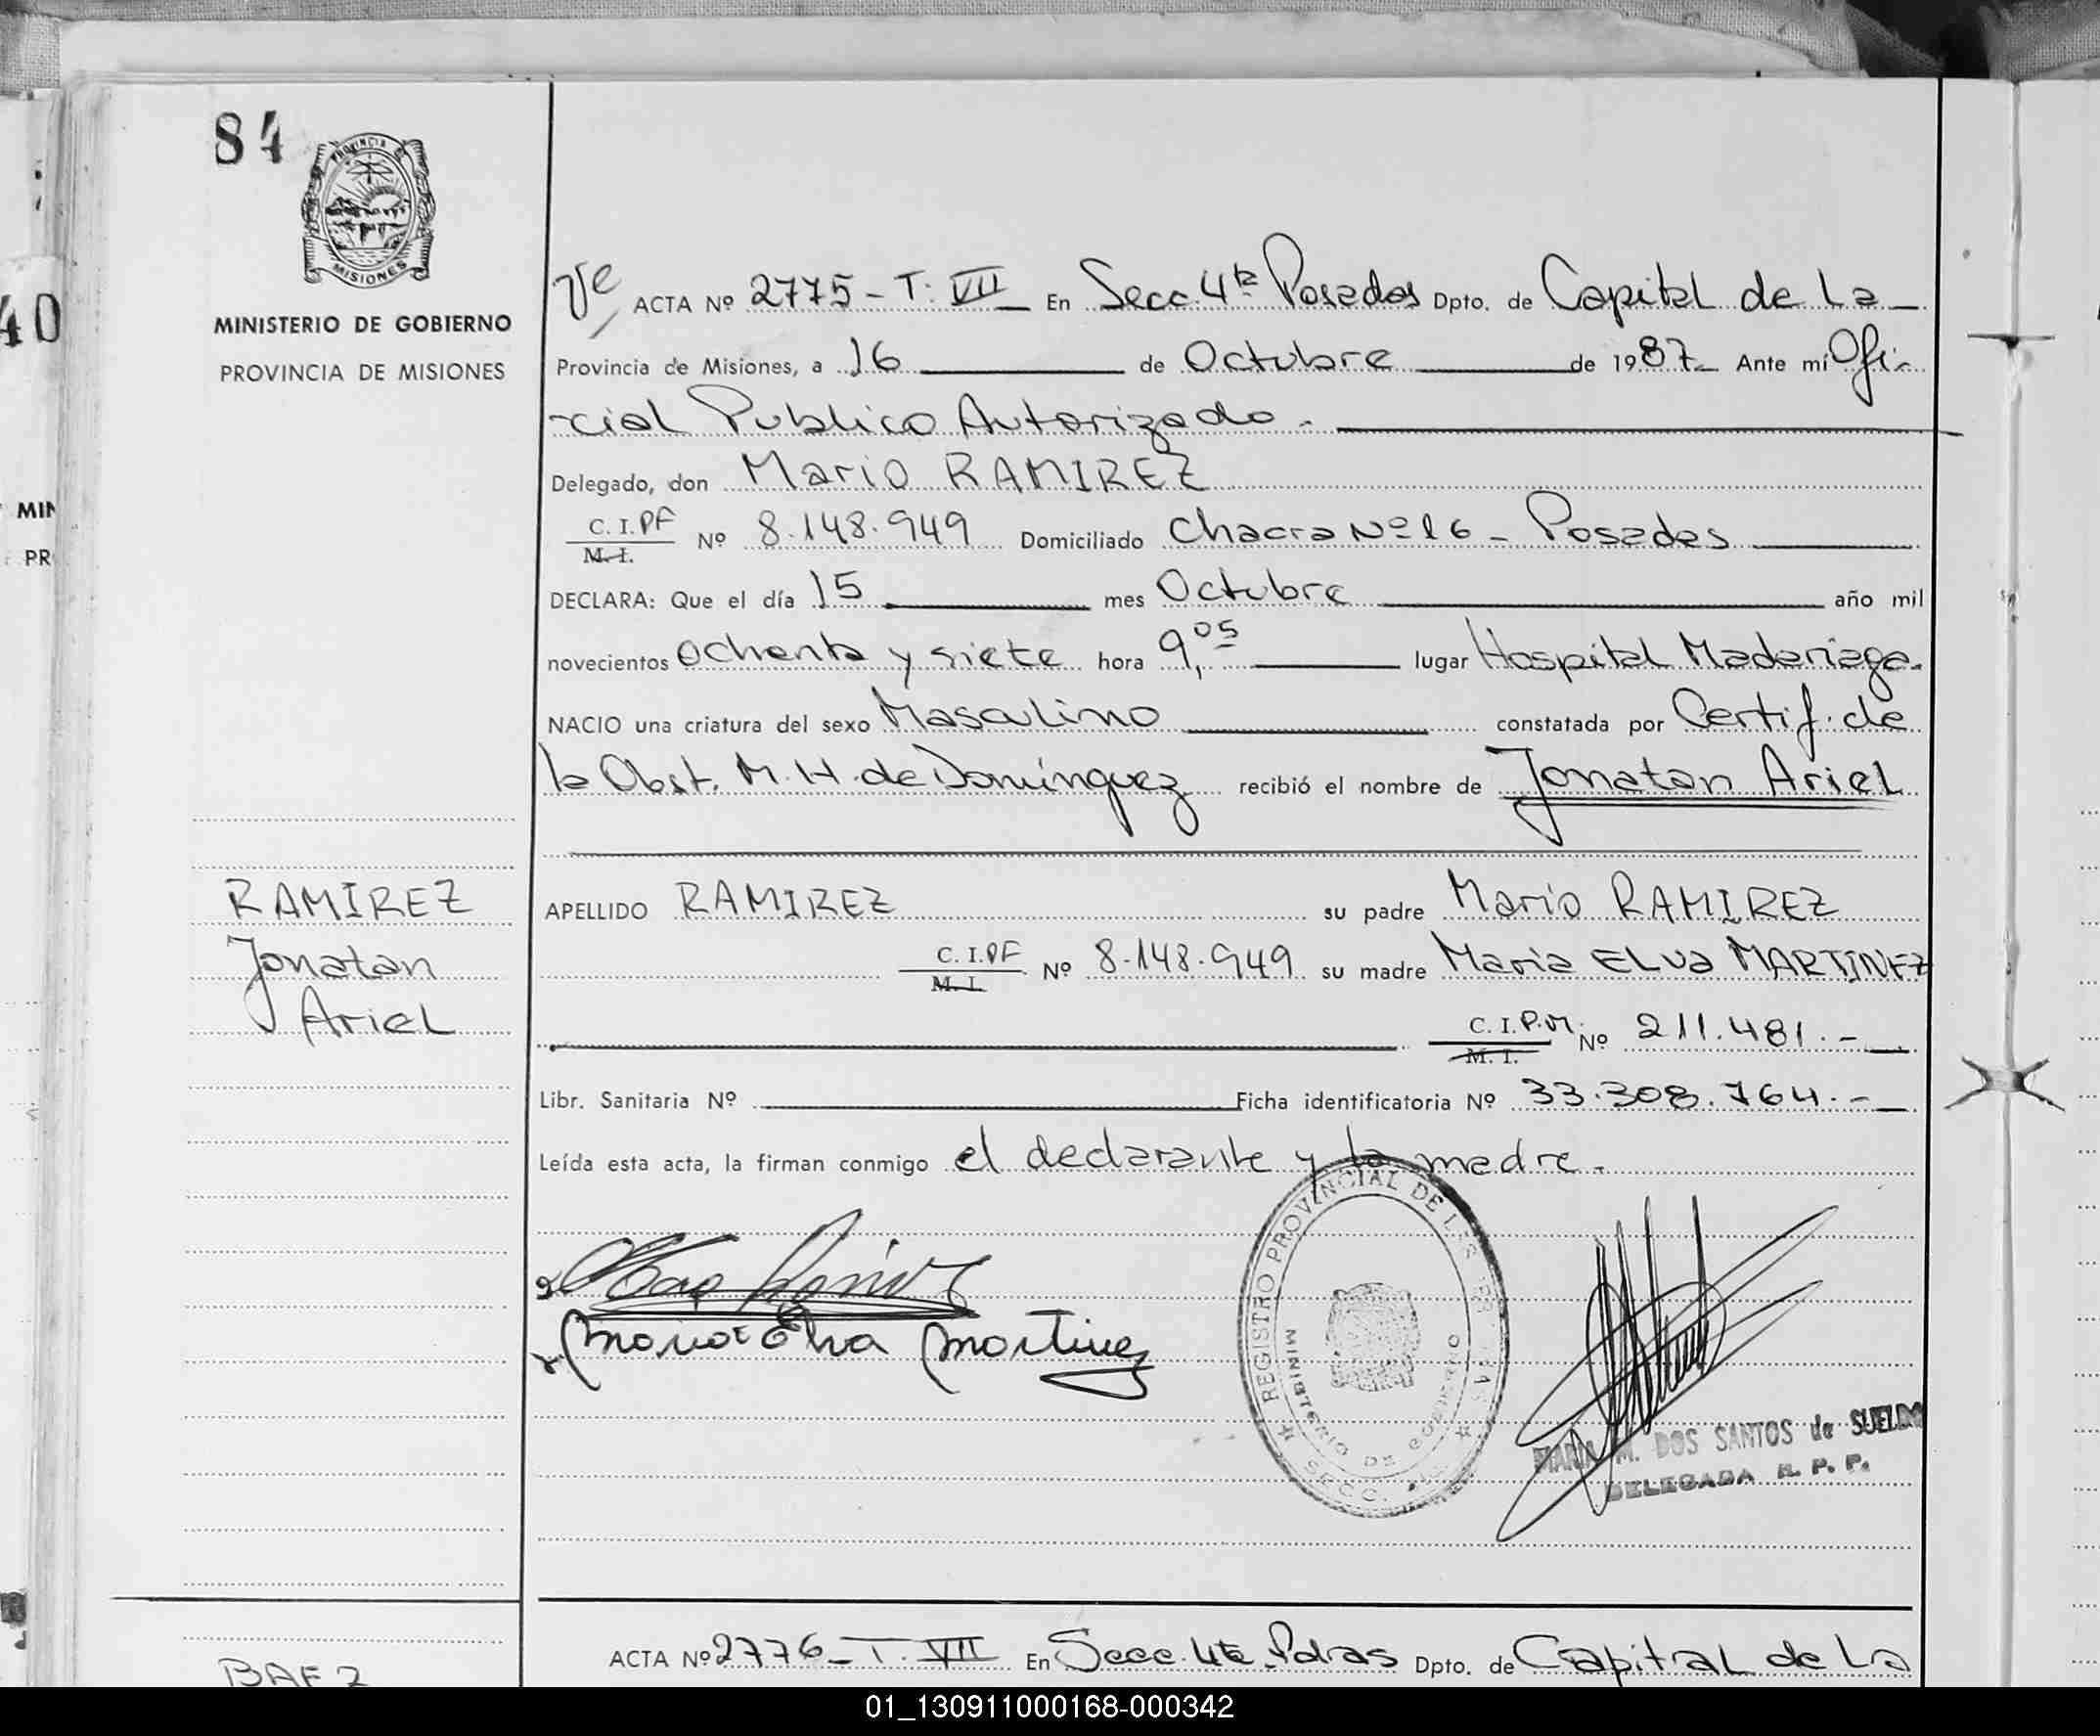 84
PROVINCIA DE
MISIONES
MINISTERIO DE GOBIERNO
PROVINCIA DE MISIONES
ACTA Nº 2775 - T: VII En Secc. 4ta Posadas Dpto. de Capital de La
Provincia de Misiones, a 16 de Octubre de 1987 Ante mí Ofi-
-cial Publico Autorizado.
Delegado, don Mario RAMIREZ
C.I.PF
M.I. Nº 8.148.949 Domiciliado Chacra Nº 16 - Posadas
DECLARA: Que el día 15 mes Octubre año mil
novecientos ochenta y siete hora 9,05 lugar Hospital Madariaga.
NACIO una criatura del sexo Masculino constatada por Certif. de
la Obst. M.H. de Domínguez recibió el nombre de Jonatan Ariel
RAMIREZ
Jonatan
Ariel
APELLIDO RAMIREZ su padre Mario RAMIREZ
C.I.PF
M.I. Nº 8.148.949 su madre Maria ELva MARTINEZ
C.I.P.M.
M.I. Nº 211.481.-
Libr. Sanitaria Nº Ficha identificatoria Nº 33.308.764.-
Leída esta acta, la firman conmigo el declarante y la madre.
Maria Elva Martinez
REGISTRO PROVINCIAL DE LAS PERSONAS
MINISTERIO DE GOBIERNO
MARIA M. DOS SANTOS de SUELDO
DELEGADA R. P. P.
BAEZ
ACTA Nº 2776 - T. VII En Secc. 4ta Pdas Dpto. de Capital de La
01_130911000168-000342
MIN
PR
40